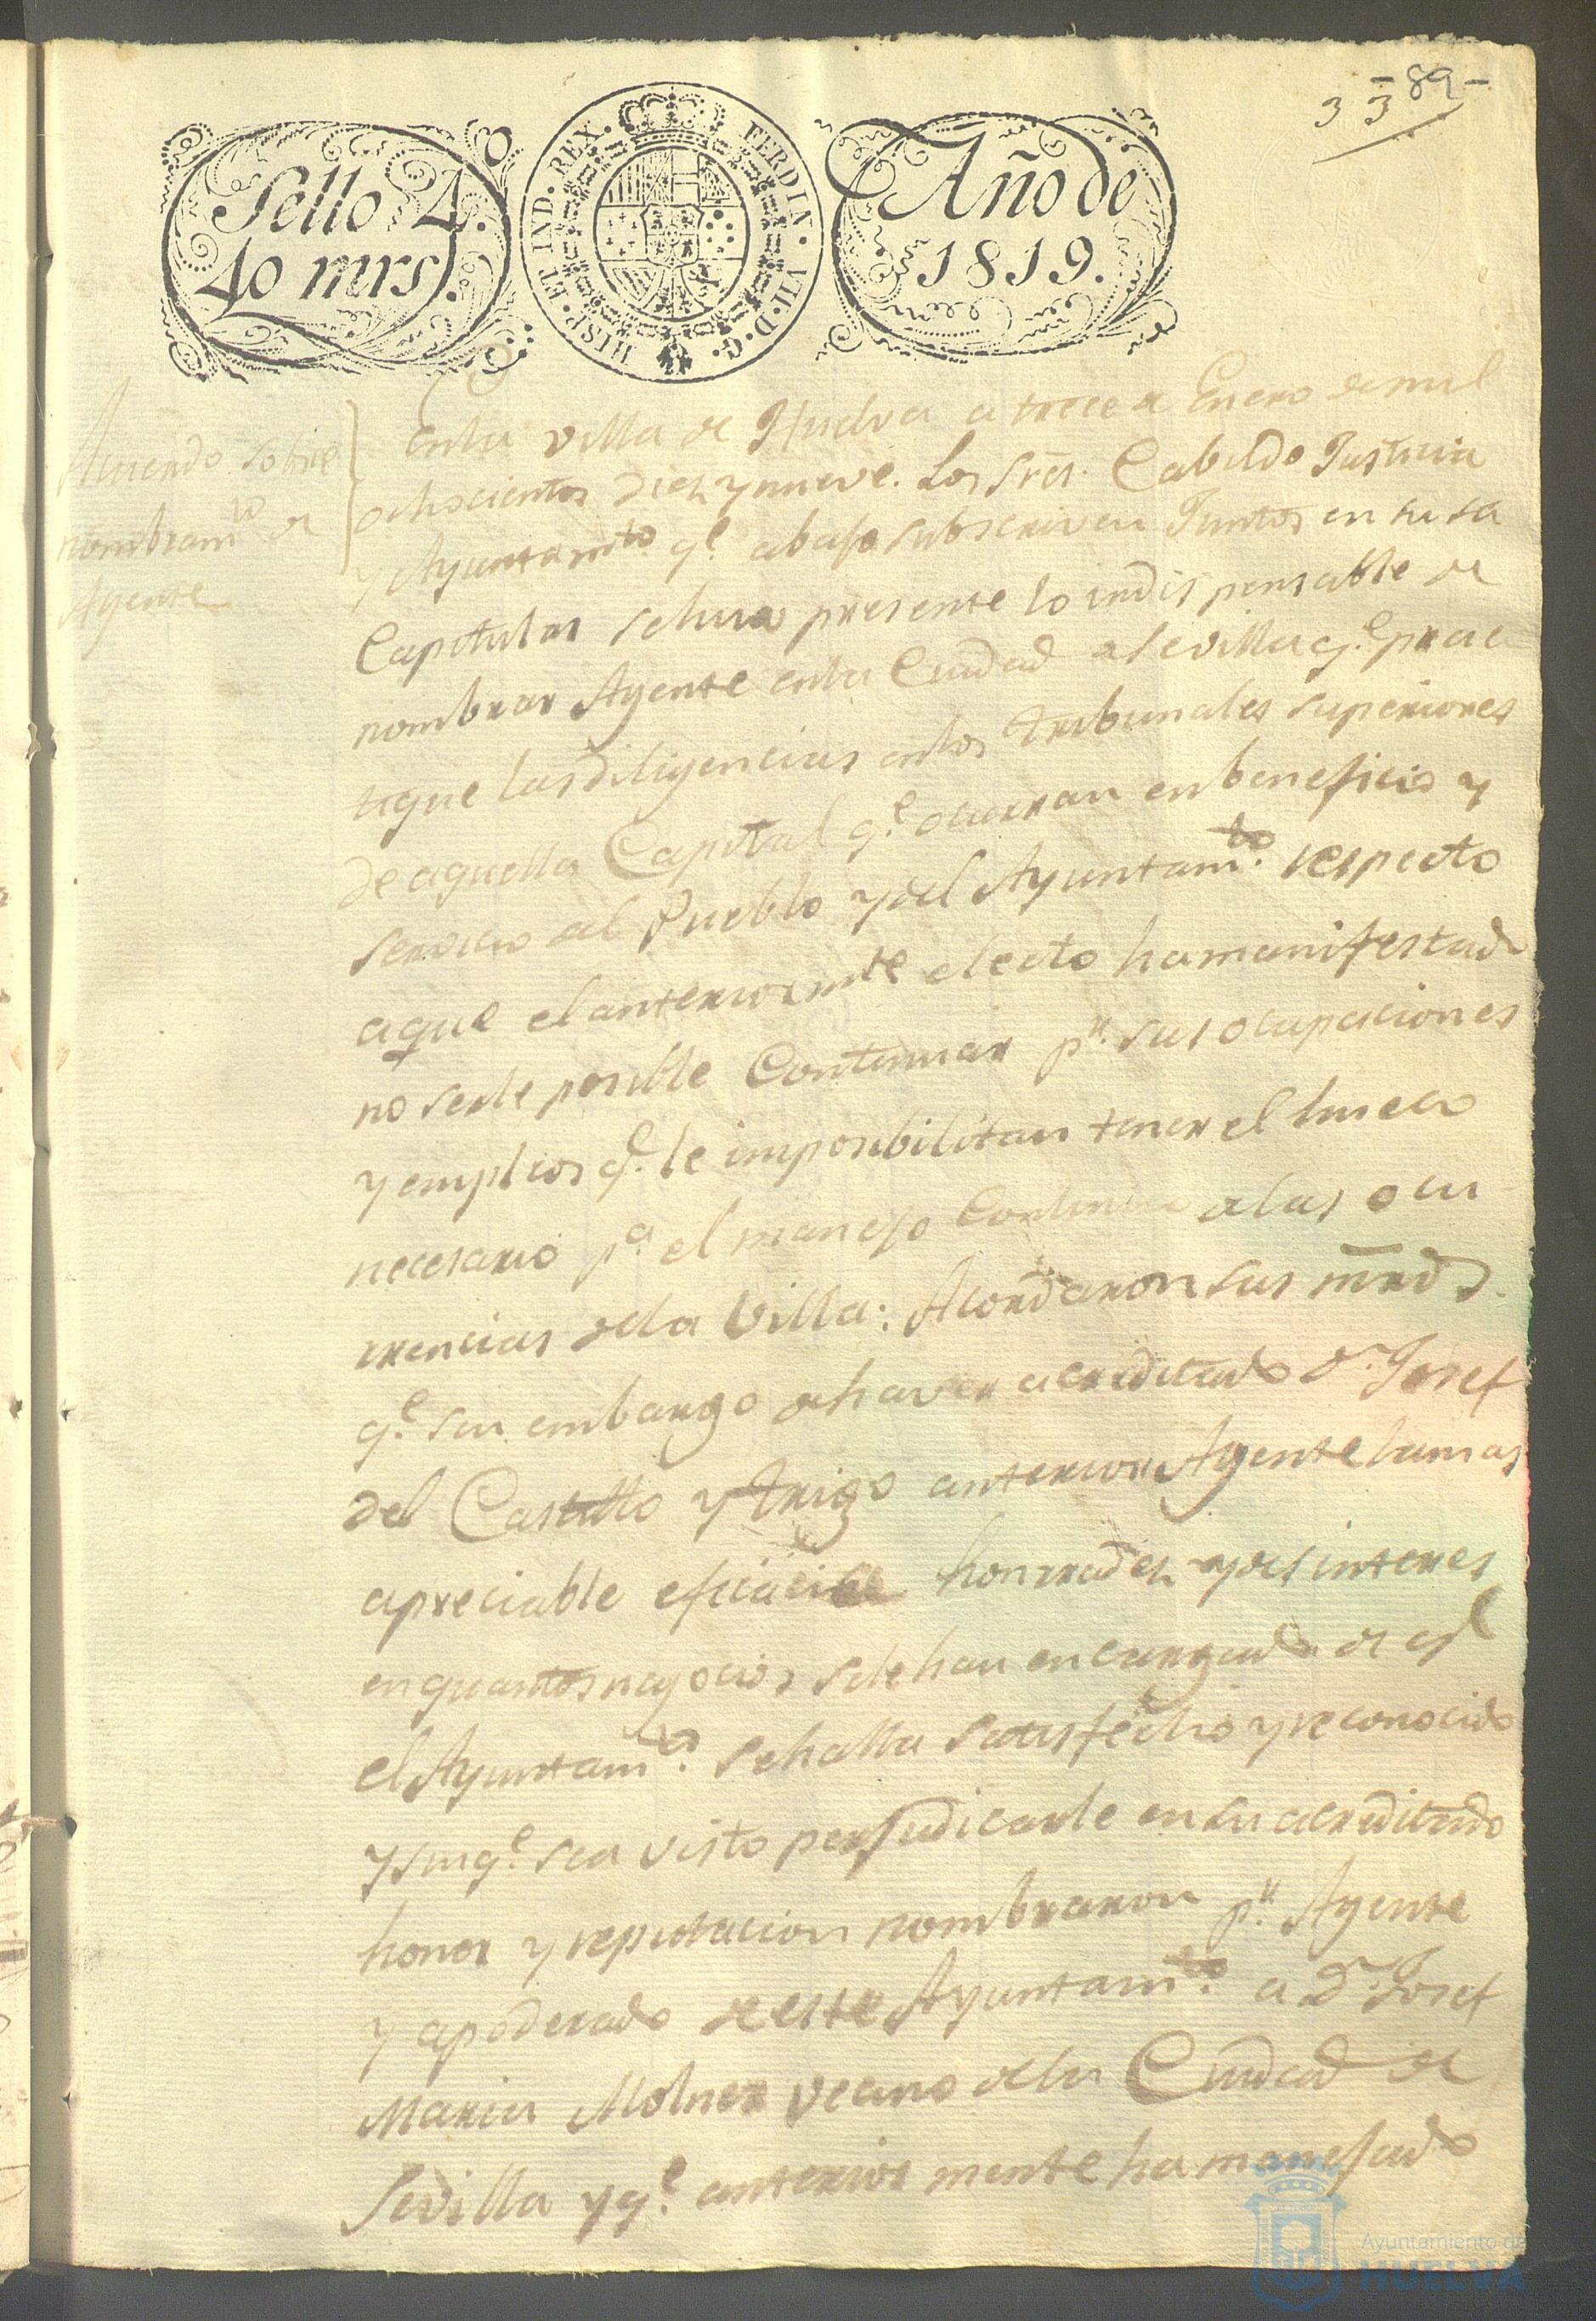 - 89 -
33
Sello 4.
40 mrs.
HISP. ET IND. REX. FERDIN. VII. D. G.
Año de
1819.
Acuerdo sobre
nombram.to de
Agente
En la villa de Huelva a trece de Enero de mil
ochocientos diez y nueve. Los Sres. Cabildo Justicia
y Ayuntamto. q.e abajo subscriven Juntos en su sa
Capitular se hizo presente lo indispensable de
nombrar Agente en la Ciudad de Sevilla q.e prac
tique las diligencias en los tribunales superiores
de aquella Capital q.e ocurran en beneficio y
servicio del Pueblo y del Ayuntam.to respecto
aque el anteriormte electo ha manifestado
no serle posible Continuar p.r sus ocupaciones
y empleos q.e le imposibilitan tener el hueco
necesario p.a el manejo Continuo de las ocu
rrencias de la Villa: Acordaron sus mrds.
q.e sin embargo de haver acreditado D.n Josef
del Castillo y trigo anterior Agente la mas
apreciable eficacia honrradez y desinteres
en quantos negocios se le han encargado de q.e
el Ayuntam.to se halla satisfecho y reconocido
y sin q.e sea visto perjudicarle en su acreditado
honor y reputacion nombraron p.r Agente
y apoderado de este Ayuntam.to a D.n Josef
Maria Molner vecino de la Ciudad de
Sevilla y q.e anterior mente ha manejado
Ayuntamiento de
HUELVA